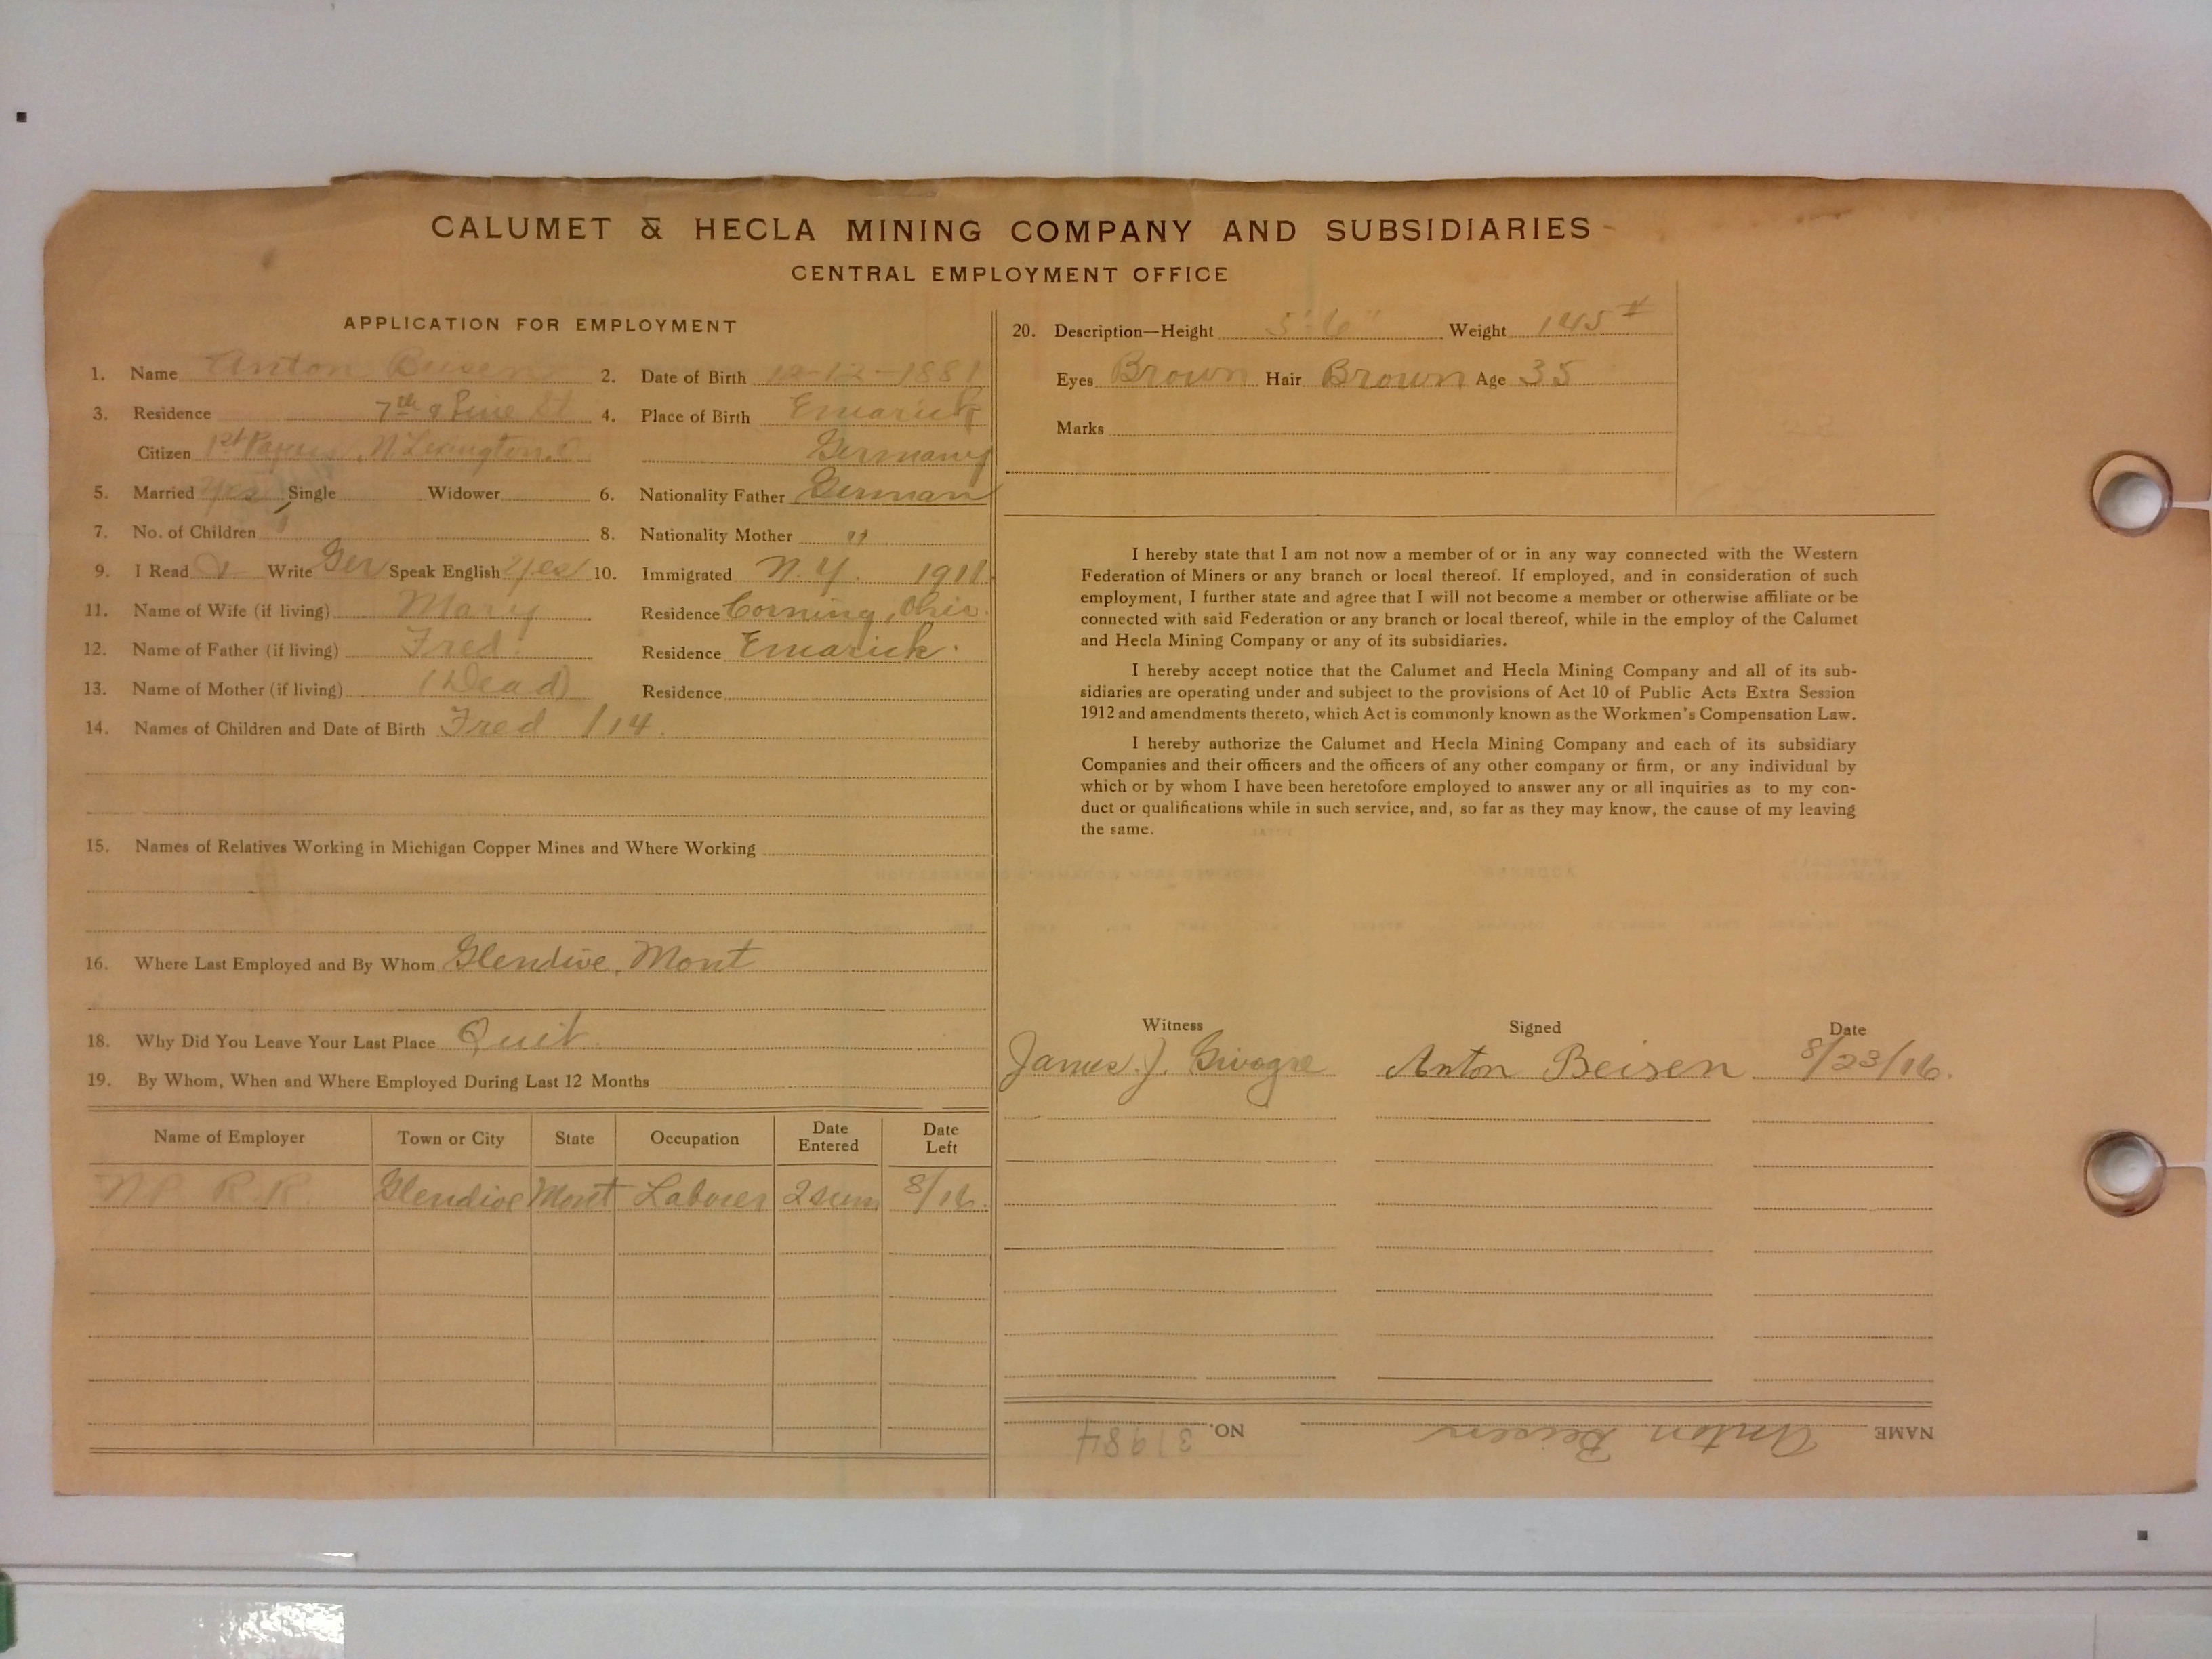 CALUMET & HECLA MINING COMPANY AND SUBSIDIARIES
CENTRAL EMPLOYMENT OFFICE
APPLICATION FOR EMPLOYMENT
1. Name Anton Beisen 2. Date of Birth 12-12-1881
3. Residence 7th & Pine St 4. Place of Birth Emarick
Citizen 1st Papers N. Lexington, O. Germany
5. Married Yes Single Widower 6. Nationality Father German
7. No. of Children 1 8. Nationality Mother "
9. I Read & Write Ger Speak English Yes 10. Immigrated N.Y. 1911
11. Name of Wife (if living) Mary Residence Corning, Ohio.
12. Name of Father (if living) Fred Residence Emarick.
13. Name of Mother (if living) (Dead) Residence
14. Names of Children and Date of Birth Fred 1/14.
15. Names of Relatives Working in Michigan Copper Mines and Where Working
16. Where Last Employed and By Whom Glendive, Mont
18. Why Did You Leave Your Last Place Quit.
19. By Whom, When and Where Employed During Last 12 Months
Name of Employer Town or City State Occupation Date Entered Date Left
N.P. R.R. Glendive Mont Laborer 2 sum 8/16.
20. Description—Height 5'6" Weight 145#
Eyes Brown Hair Brown Age 35
Marks
I hereby state that I am not now a member of or in any way connected with the Western
Federation of Miners or any branch or local thereof. If employed, and in consideration of such
employment, I further state and agree that I will not become a member or otherwise affiliate or be
connected with said Federation or any branch or local thereof, while in the employ of the Calumet
and Hecla Mining Company or any of its subsidiaries.
I hereby accept notice that the Calumet and Hecla Mining Company and all of its sub-
sidiaries are operating under and subject to the provisions of Act 10 of Public Acts Extra Session
1912 and amendments thereto, which Act is commonly known as the Workmen's Compensation Law.
I hereby authorize the Calumet and Hecla Mining Company and each of its subsidiary
Companies and their officers and the officers of any other company or firm, or any individual by
which or by whom I have been heretofore employed to answer any or all inquiries as to my con-
duct or qualifications while in such service, and, so far as they may know, the cause of my leaving
the same.
Witness Signed Date
James J. Anton Beisen 8/23/16.
NAME Anton Beisen NO. 31984